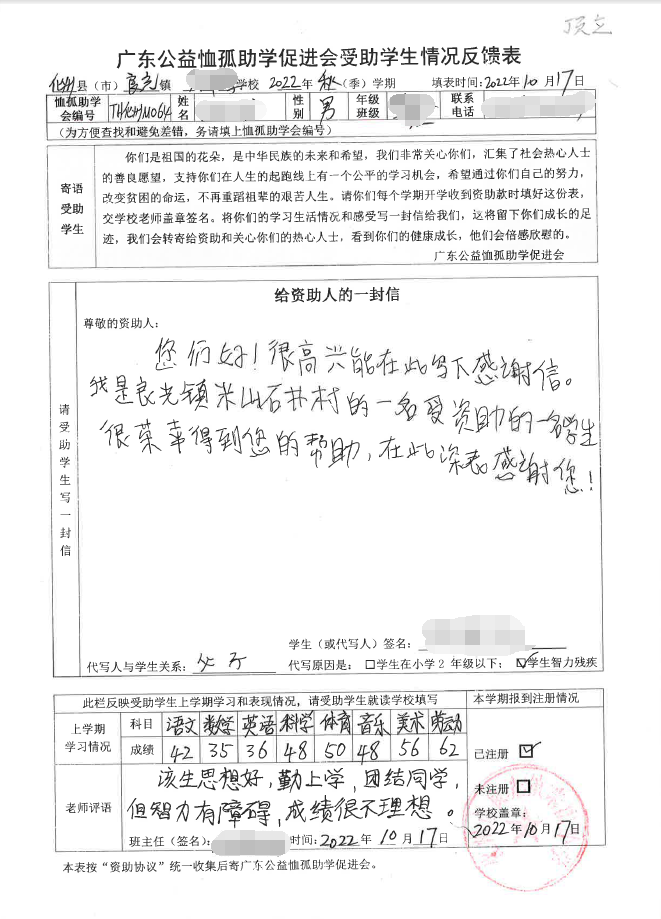 顶立
广东公益恤孤助学促进会受助学生情况反馈表
化州县(市)良光镇 学校 2022年 秋(季)学期 填表时间:2022年10月17日
恤孤助学会编号 THKSHM064 姓名 性别 男 年级班级 联系电话
(为方便查找和避免差错,务请填上恤孤助学会编号)
寄语受助学生
你们是祖国的花朵,是中华民族的未来和希望,我们非常关心你们,汇集了社会热心人士
的善良愿望,支持你们在人生的起跑线上有一个公平的学习机会,希望通过你们自己的努力,
改变贫困的命运,不再重蹈祖辈的艰苦人生。请你们每个学期开学收到资助款时填好这份表,
交学校老师盖章签名。将你们的学习生活情况和感受写一封信给我们,这将留下你们成长的足
迹,我们会转寄给资助和关心你们的热心人士,看到你们的健康成长,他们会倍感欣慰的。
广东公益恤孤助学促进会
请受助学生写一封信
给资助人的一封信
尊敬的资助人:
您们好!很高兴能在此写下感谢信。
我是良光镇米山石井村的一名受资助的一名学生
很荣幸得到您的帮助,在此深表感谢您!
学生(或代写人)签名:
代写人与学生关系: 父子 代写原因是:□学生在小学2年级以下;☑学生智力残疾
此栏反映受助学生上学期学习和表现情况,请受助学生就读学校填写 本学期报到注册情况
上学期学习情况
科目 语文 数学 英语 科学 体育 音乐 美术 劳动
成绩 42 35 36 48 50 48 56 62
已注册 ☑
未注册 □
学校盖章:
2022年10月17日
老师评语
该生思想好,勤上学,团结同学,
但智力有障碍,成绩很不理想。
班主任(签名): 时间:2022年10月17日
本表按“资助协议”统一收集后寄广东公益恤孤助学促进会。